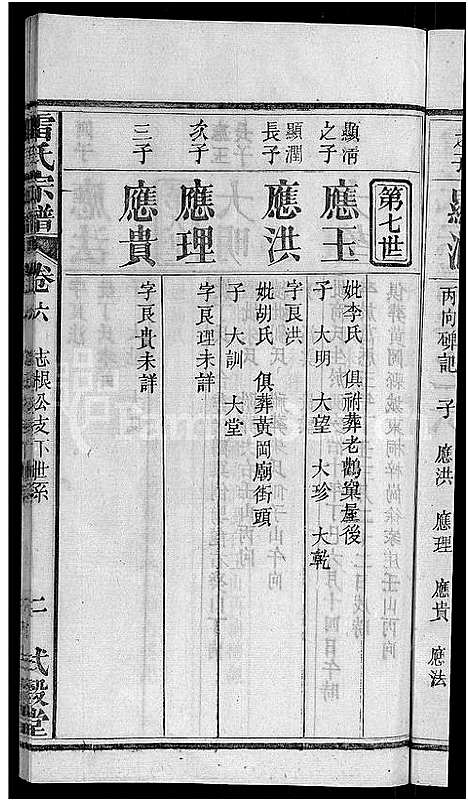 之子
丙向碑記 子 應洪 應理 應貴 應法
第七世
顯清之子
應玉
妣李氏 俱祔葬老鸛巢屋後
子 大明 大望 大珍 大乾
顯潤長子
應洪
字良洪
妣胡氏 俱葬黃岡廟街頭
子 大訓 大堂
次子
應理
字良理未詳
三子
應貴
字良貴未詳
雷氏宗譜 卷六 志根公支下世系 二 式穀堂